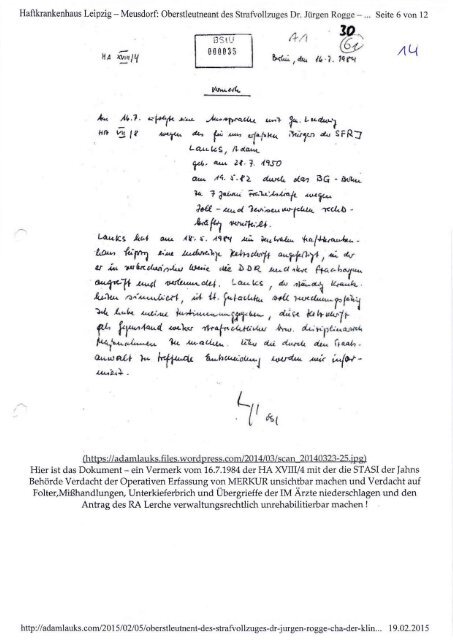 Haftkrankenhaus Leipzig – Meusdorf: Oberstleutneant des Strafvollzuges Dr. Jürgen Rogge – ... Seite 6 von 12
BStU
000035
A/1
30
61
14
HA XVIII/4
Berlin, den 16.7.1984
Vermerk
Am 16.7. erfolgte eine Aussprache mit Gen. Ludwig
HA VII/8 wegen des für uns erfaßten Bürgers der SFRJ
Lauks, Adam
geb. am 28.7.1950
am 19.5.82 durch das BG - Berlin
zu 7 Jahren Freiheitsstrafe wegen
Zoll - und Devisenvergehen rechts-
kräftig verurteilt.
Lauks hat am 18.5.1984 im zentralen Haftkranken-
haus Leipzig eine Hetzschrift angefertigt, in der
er in verbrecherischer Weise die DDR und
angreift und verleumdet. Lauks, der ständig Krank-
heiten simuliert, ist lt. Gutachten voll zurechnungsfähig
Ich habe meine Zustimmung gegeben, diese Hetzschrift
als Gegenstand weiter strafrechtlicher bzw. disziplinarisch
Maßnahmen zu machen. Über die durch den Staats-
anwalt zu treffende Entscheidung werden wir infor-
miert.
(https://adamlauks.files.wordpress.com/2014/03/scan_20140323-25.jpg)
Hier ist das Dokument – ein Vermerk vom 16.7.1984 der HA XVIII/4 mit der die STASI der Jahns
Behörde Verdacht der Operativen Erfassung von MERKUR unsichtbar machen und Verdacht auf
Folter,Mißhandlungen, Unterkieferbrich und Übergrieffe der IM Ärzte niederschlagen und den
Antrag des RA Lerche verwaltungsrechtlich unrehabilitierbar machen !
http://adamlauks.com/2015/02/05/oberstleutnent-des-strafvollzuges-dr-jurgen-rogge-cha-der-klin... 19.02.2015